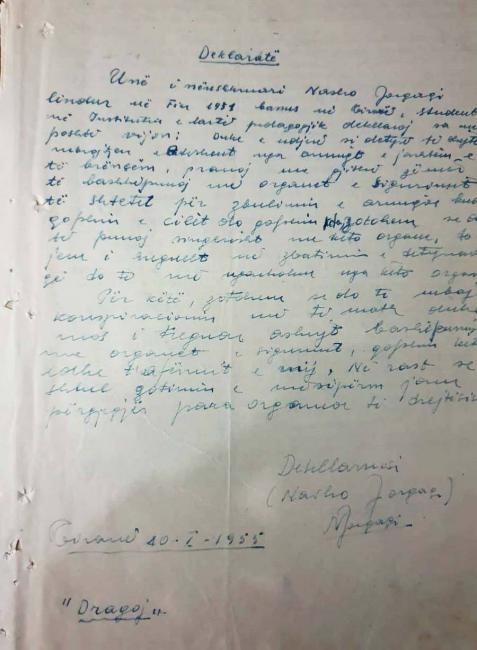 Deklaratë
Unë i nënshkruari Nasho Jorgaqi
lindur në Fier 1931 banus në Tiranë, student
në Institutin e lartë pedagogjik deklaroj sa më
poshtë vijon: Duke e ndjerë si detyrë të
mbrojtjen e atdheut nga armiqt e jashtëm e
të brëndëm, pranoj me gjithë zëmër
të bashkëpunoj me organet e Sigurimit
të Shtetit për zbulimin e armiqve kudo
qofshin e cilët do qofshin. zotohem se do
të punoj singerisht me këto organe, do
jem i sugurt në zbatimin e detyrave
që do të më ngarkohen nga këto organe
Për këtë, zotohem se do të ruaj
konspiracionin më të madh duke
mos i treguar askujt bashkëpunimin
me organet e sigurimit, qofshin këta
edhe të afërmit e mij. Në rast se
shkel zotimin e mësipërm jam
përgjegjës para organeve të drejtësisë
Deklaruesi
(Nasho Jorgaqi)
NJorgaqi
Tiranë 10-I-1955
"Dragoj"